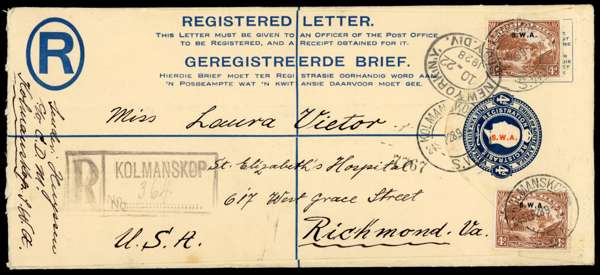 REGISTERED LETTER.
THIS LETTER MUST BE GIVEN TO AN OFFICER OF THE POST OFFICE
TO BE REGISTERED, AND A RECEIPT OBTAINED FOR IT.
GEREGISTREERDE BRIEF.
HIERDIE BRIEF MOET TER REGISTRASIE OORHANDIG WORD AAN
'N POSBEAMPTE WAT 'N KWITANSIE DAARVOOR MOET GEE.
R
S.W.A.
4d
NEW YORK, N.Y.
REG'Y. DIV.
KOLMANSKOP
REGISTRATION
S.W.A.
Miss Laura Victor
St. Elizabeth's Hospital
617 West Grace Street
Richmond. Va.
U.S.A.
R
KOLMANSKOP
No. 364
C.D.M.
Kolmanskop S.W.A.
KOLMANSKOP
S.W.A.
4d